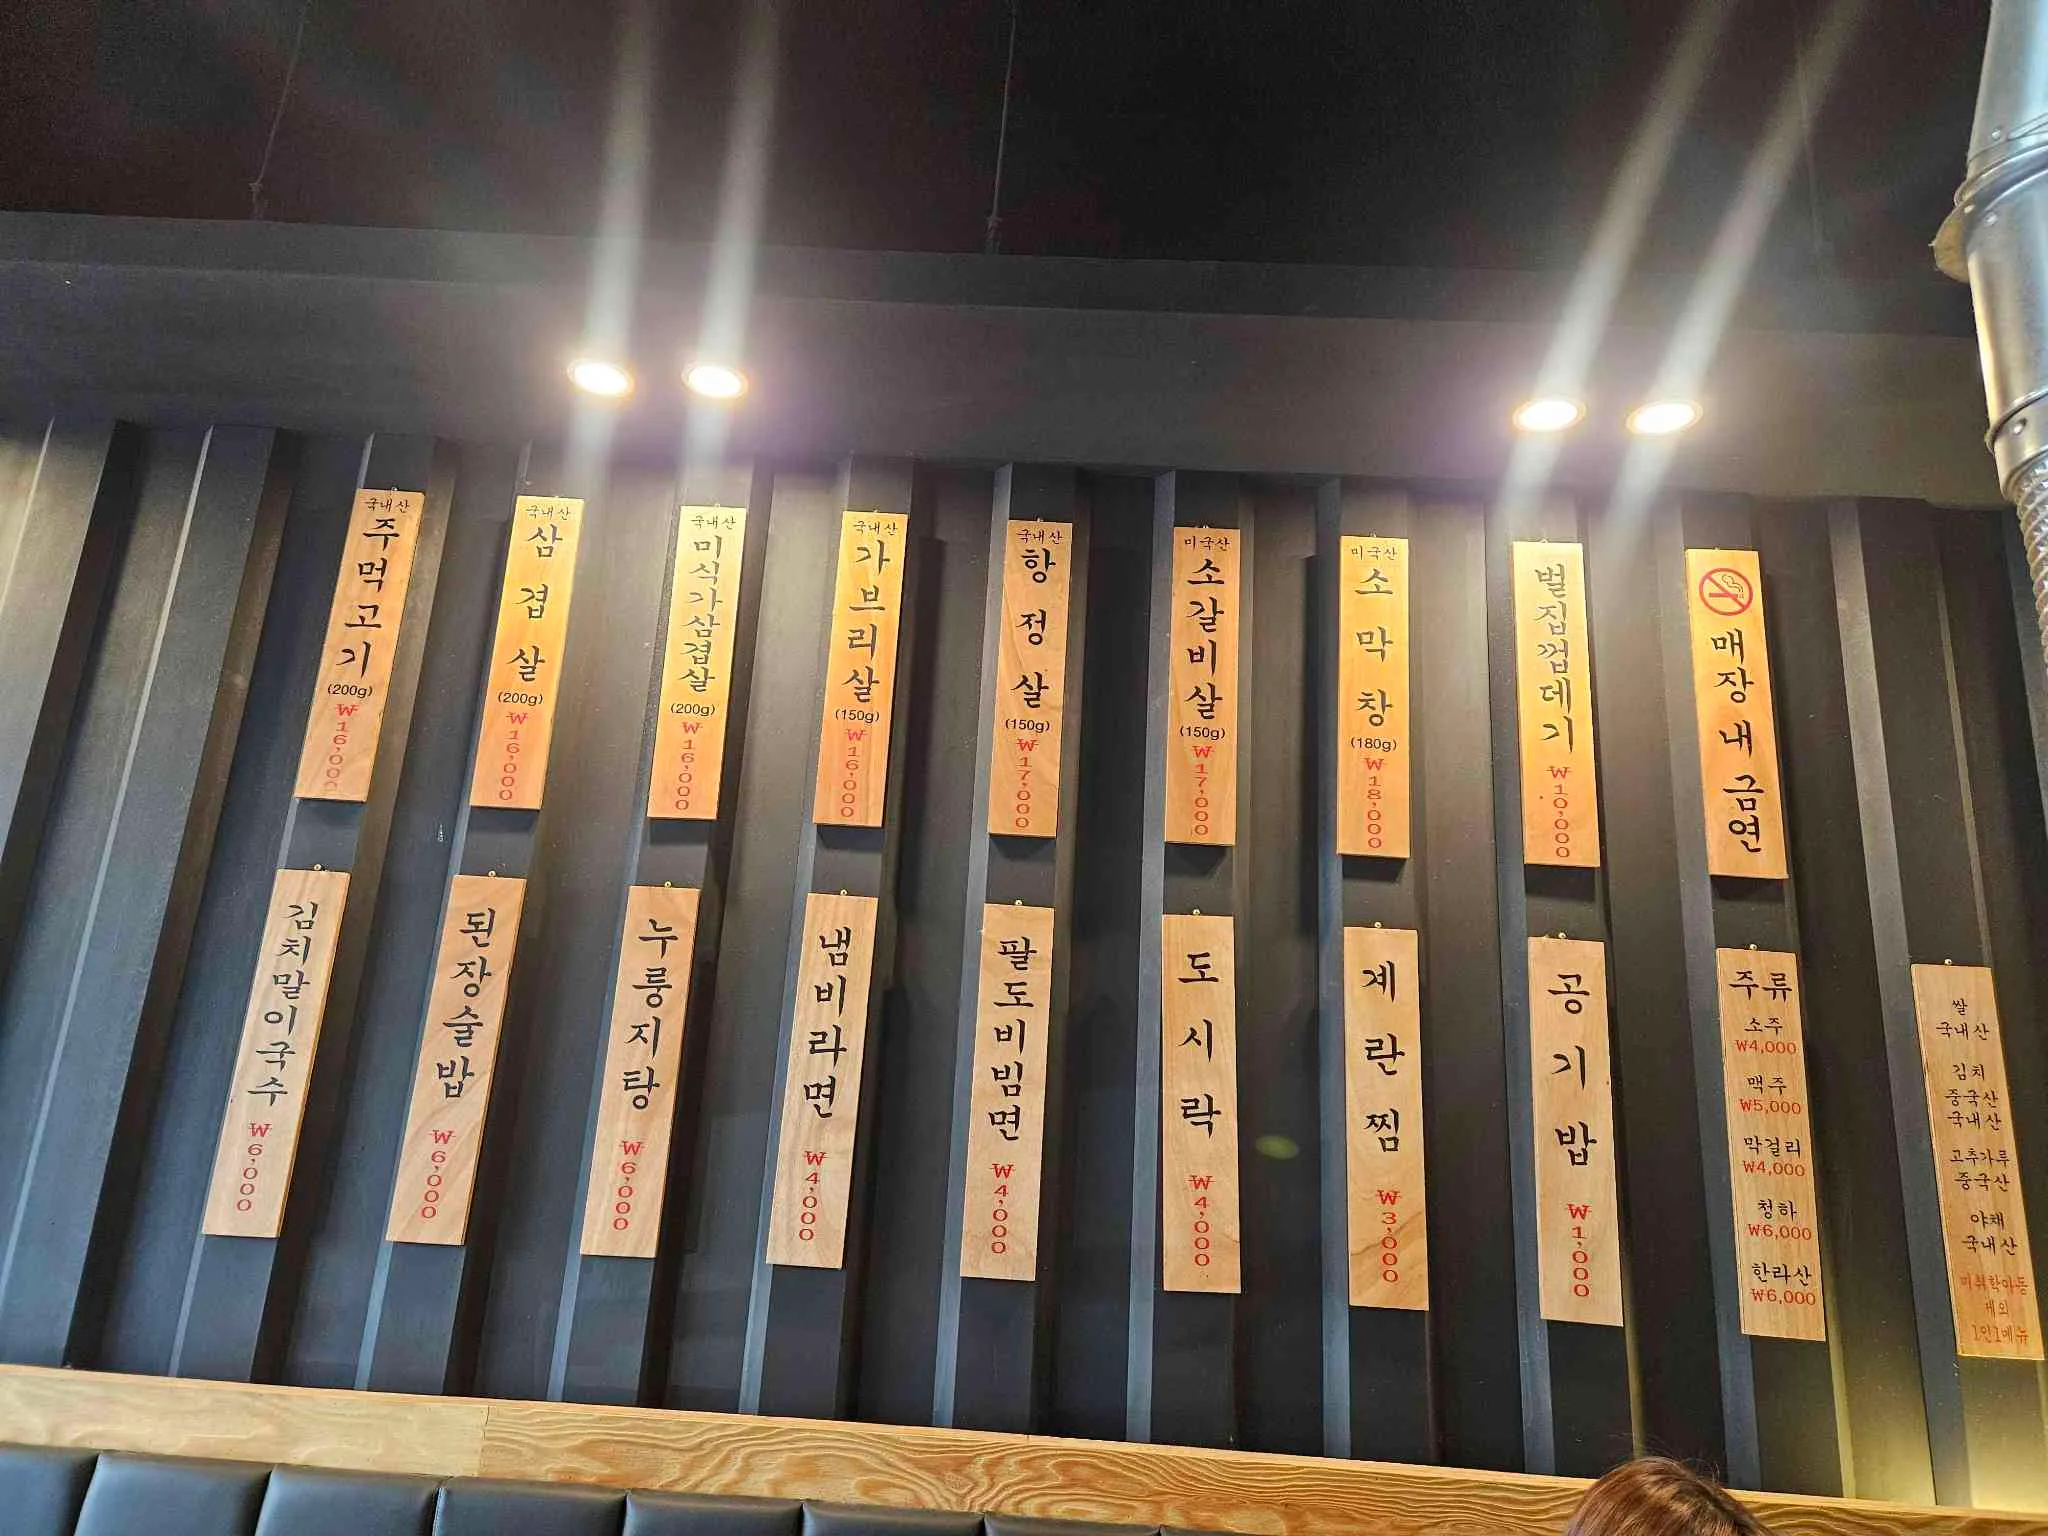 국내산
주먹고기
(200g)
₩16,000
국내산
삼겹살
(200g)
₩16,000
국내산
미식가삼겹살
(200g)
₩16,000
국내산
가브리살
(150g)
₩16,000
국내산
항정살
(150g)
₩17,000
미국산
소갈비살
(150g)
₩17,000
미국산
소막창
(180g)
₩18,000
벌집껍데기
₩10,000
매장내금연
김치말이국수
₩6,000
된장술밥
₩6,000
누룽지탕
₩6,000
냄비라면
₩4,000
팔도비빔면
₩4,000
도시락
₩4,000
계란찜
₩3,000
공기밥
₩1,000
주류
소주
₩4,000
맥주
₩5,000
막걸리
₩4,000
청하
₩6,000
한라산
₩6,000
쌀
국내산
김치
중국산
국내산
고추가루
중국산
야채
국내산
미취학아동
제외
1인1메뉴